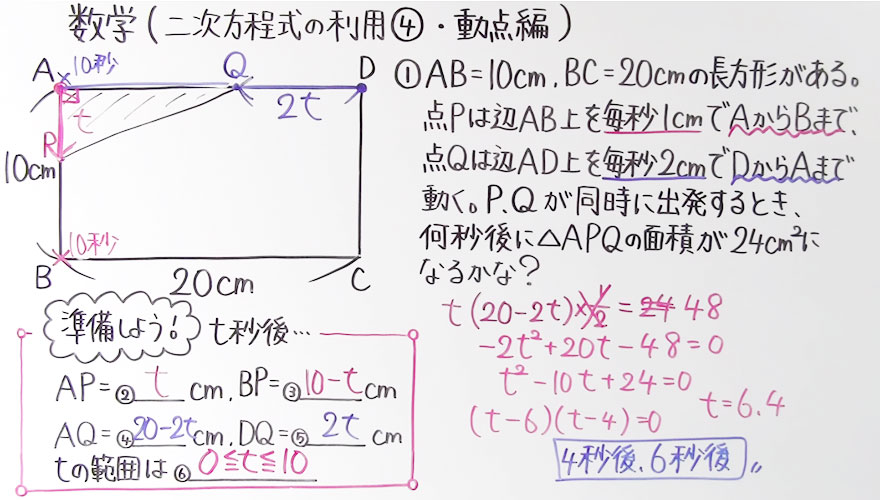 数学(二次方程式の利用④・動点編)
A 10秒 Q D
t 2t
P
10cm
10秒
B 20cm C
①AB=10cm, BC=20cmの長方形がある。
点Pは辺AB上を毎秒1cmでAからBまで、
点Qは辺AD上を毎秒2cmでDからAまで
動く。P,Qが同時に出発するとき、
何秒後に△APQの面積が24cm²に
なるかな?
t(20-2t)×1/2=24 48
-2t²+20t-48=0
t²-10t+24=0
(t-6)(t-4)=0 t=6,4
4秒後、6秒後
準備しよう! t秒後…
AP=②t cm, BP=③10-t cm
AQ=④20-2t cm, DQ=⑤2t cm
tの範囲は⑥0≦t≦10